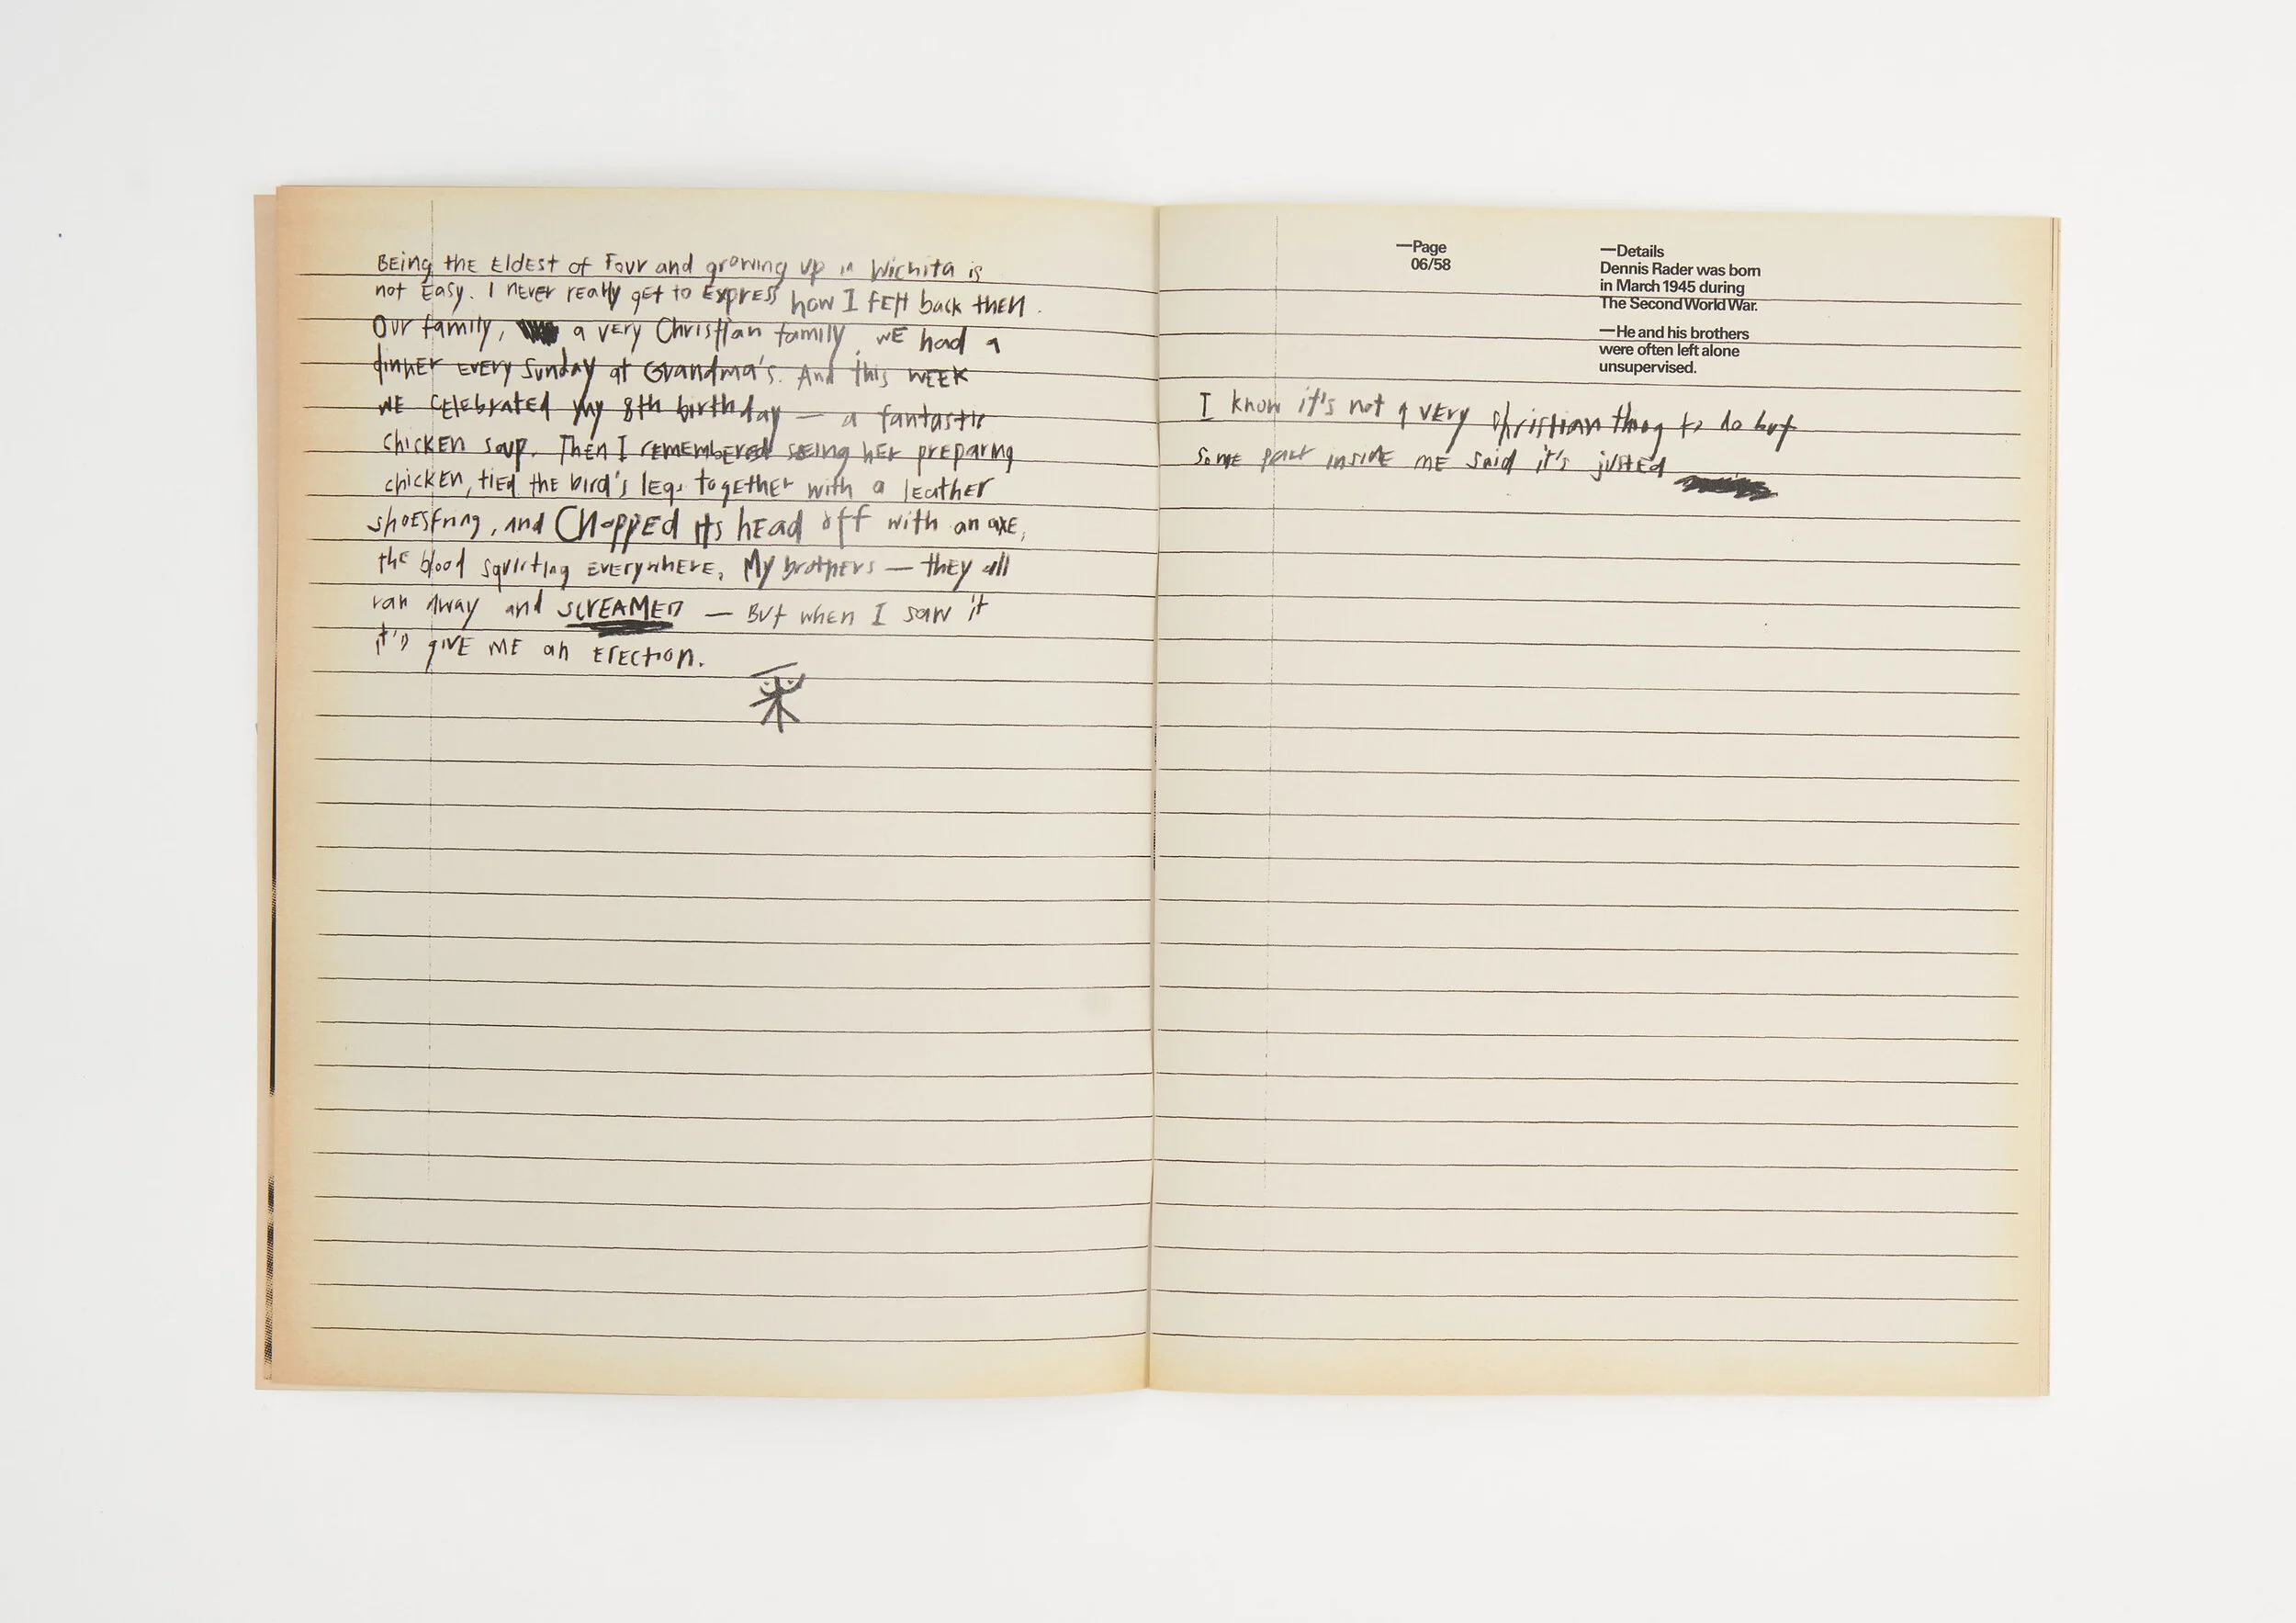 BEing the Eldest of Four and growing up in Wichita is
not Easy. I never really get to Express how I felt back then.
Our family, a very Christian family, we had a
dinner every Sunday at Grandma's. And this week
we celebrated my 8th birthday — a fantastic
chicken soup. Then I remembered seeing her preparing
chicken, tied the bird's legs together with a leather
shoestring, and Chopped its head off with an axe,
the blood squirting everywhere. My brothers — they all
ran away and SCREAMED — But when I saw it
it'd give me an Erection.
—Page
06/58
—Details
Dennis Rader was born
in March 1945 during
The Second World War.
—He and his brothers
were often left alone
unsupervised.
I know it's not a very Christian thing to do but
some part inside me said it's